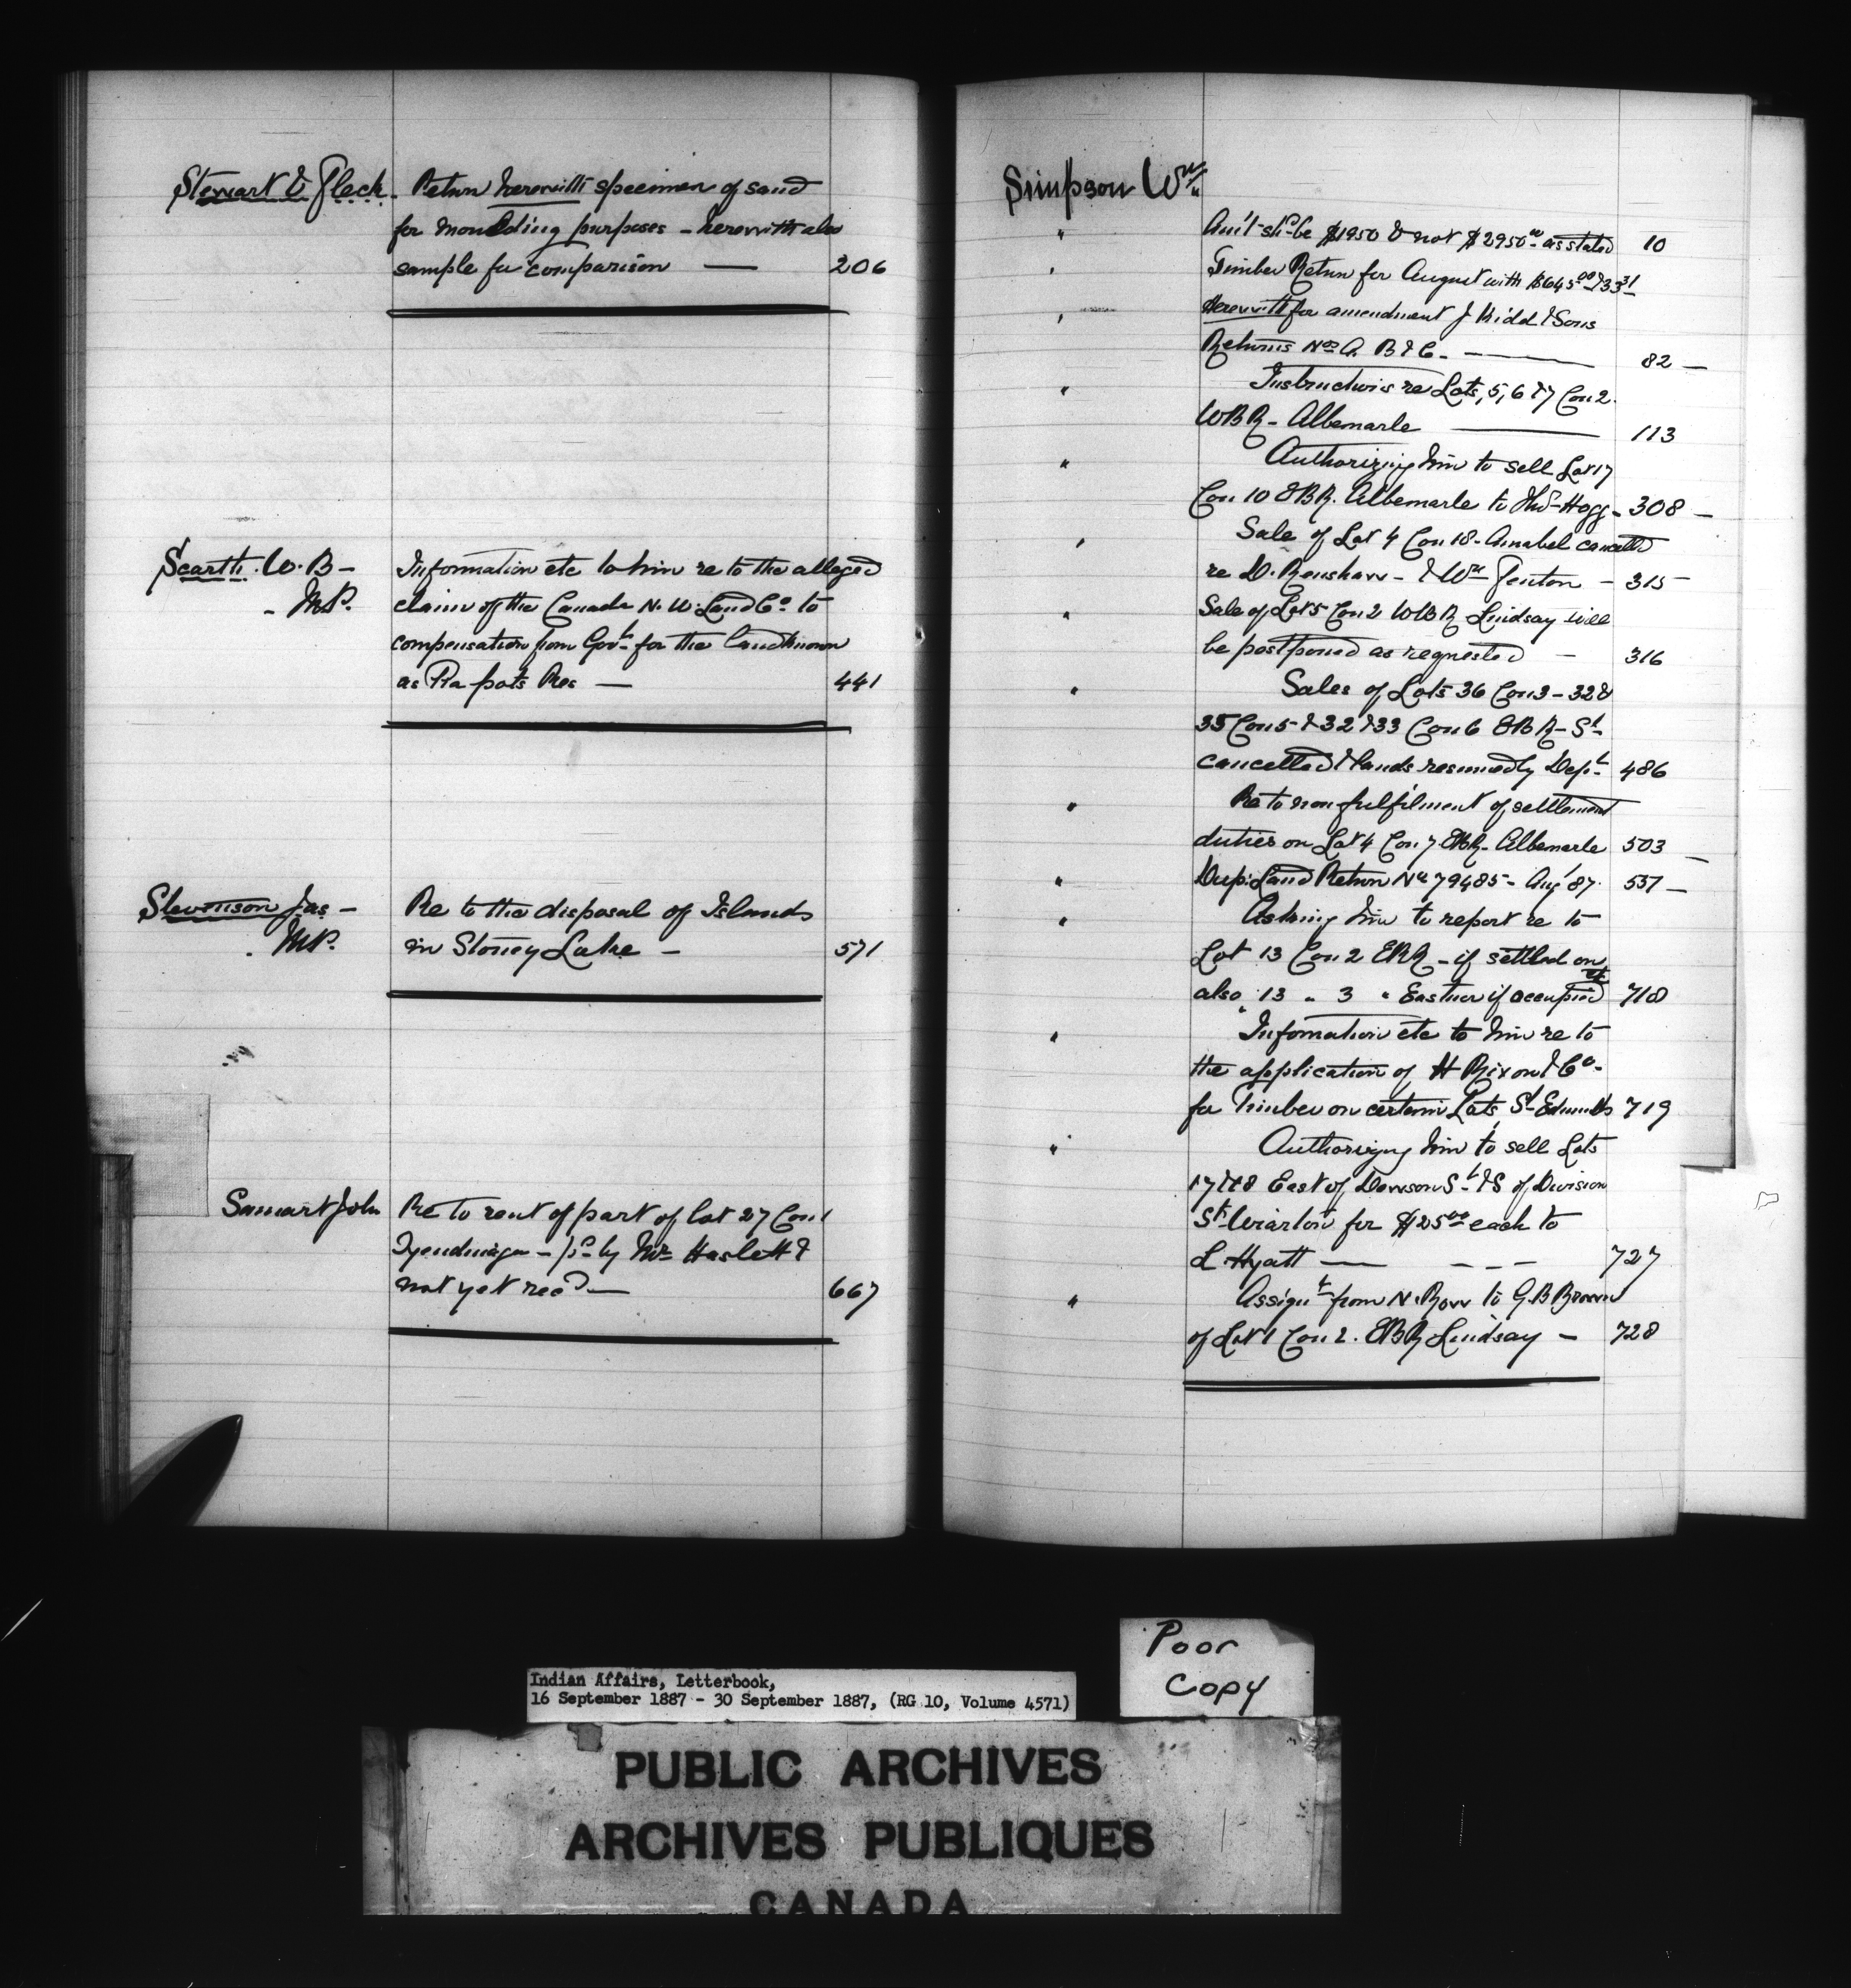 Stewart & Fleck - Return herewith specimen of sand
for moulding purposes - herewith also
sample for comparison — 206
Scarth. W. B - Information etc to him re to the alleged
- M.P. claim of the Canada N. W. Land Co. to
compensation from Govt. for the land known
as Pia pots Res — 441
Stevenson Jas - Re to the disposal of Islands
. M.P. in Stoney Lake - 571
Smart John Re to rent of part of lot 27 Con 1
Tyendinaga - pd by Mr Haslett &
not yet recd — 667
Simpson Wm
" Am't shd be $1950 & not $2950.00 as stated 10
" Timber Return for August with $645.00 & 33.31
" Herewith for amendment J Kidd & Sons
Returns Nos A. B & C. — 82 —
" Instructions re Lots, 5, 6 & 7 Con 2.
WBR - Albemarle — 113
" Authorizing him to sell Lot 17
Con 10 EBR. Albemarle to Hogg - 308 —
" Sale of Lot 4 Con 18 - Amabel cancelled
re D. Renshaw - & Wm Fenton - 315 -
" Sale of Lot 5 Con 2 WBR Lindsay will
be postponed as requested — 316
" Sales of Lots 36 Con 3 - 32 &
35 Con 5 & 32 & 33 Con 6 EBR - St.
cancelled & lands resumed by Dept. 486
" Re to non fulfilment of settlement
duties on Lot 4 Con 7 EBR - Albemarle 503 —
" Dup: Land Return No 79485 - Aug '87. 537 —
" Asking him to report re to
Lot 13 Con 2 EBR - if settled on
also 13 " 3 " Eastnor if occupied 718
" Information etc to him re to
the application of H Rixon & Co.
for Timber on certain Lots, St. Edmunds 719
" Authorizing him to sell Lots
17 & 18 East of St. & S of Division
St. Wiarton for $25.00 each to
L Hyatt — - - - 727
" Assignt from N. Row to G. B Brown
of Lot 1 Con 2. EBR Lindsay - 728
Poor
Copy
Indian Affairs, Letterbook,
16 September 1887 - 30 September 1887, (RG 10, Volume 4571)
PUBLIC ARCHIVES
ARCHIVES PUBLIQUES
CANADA